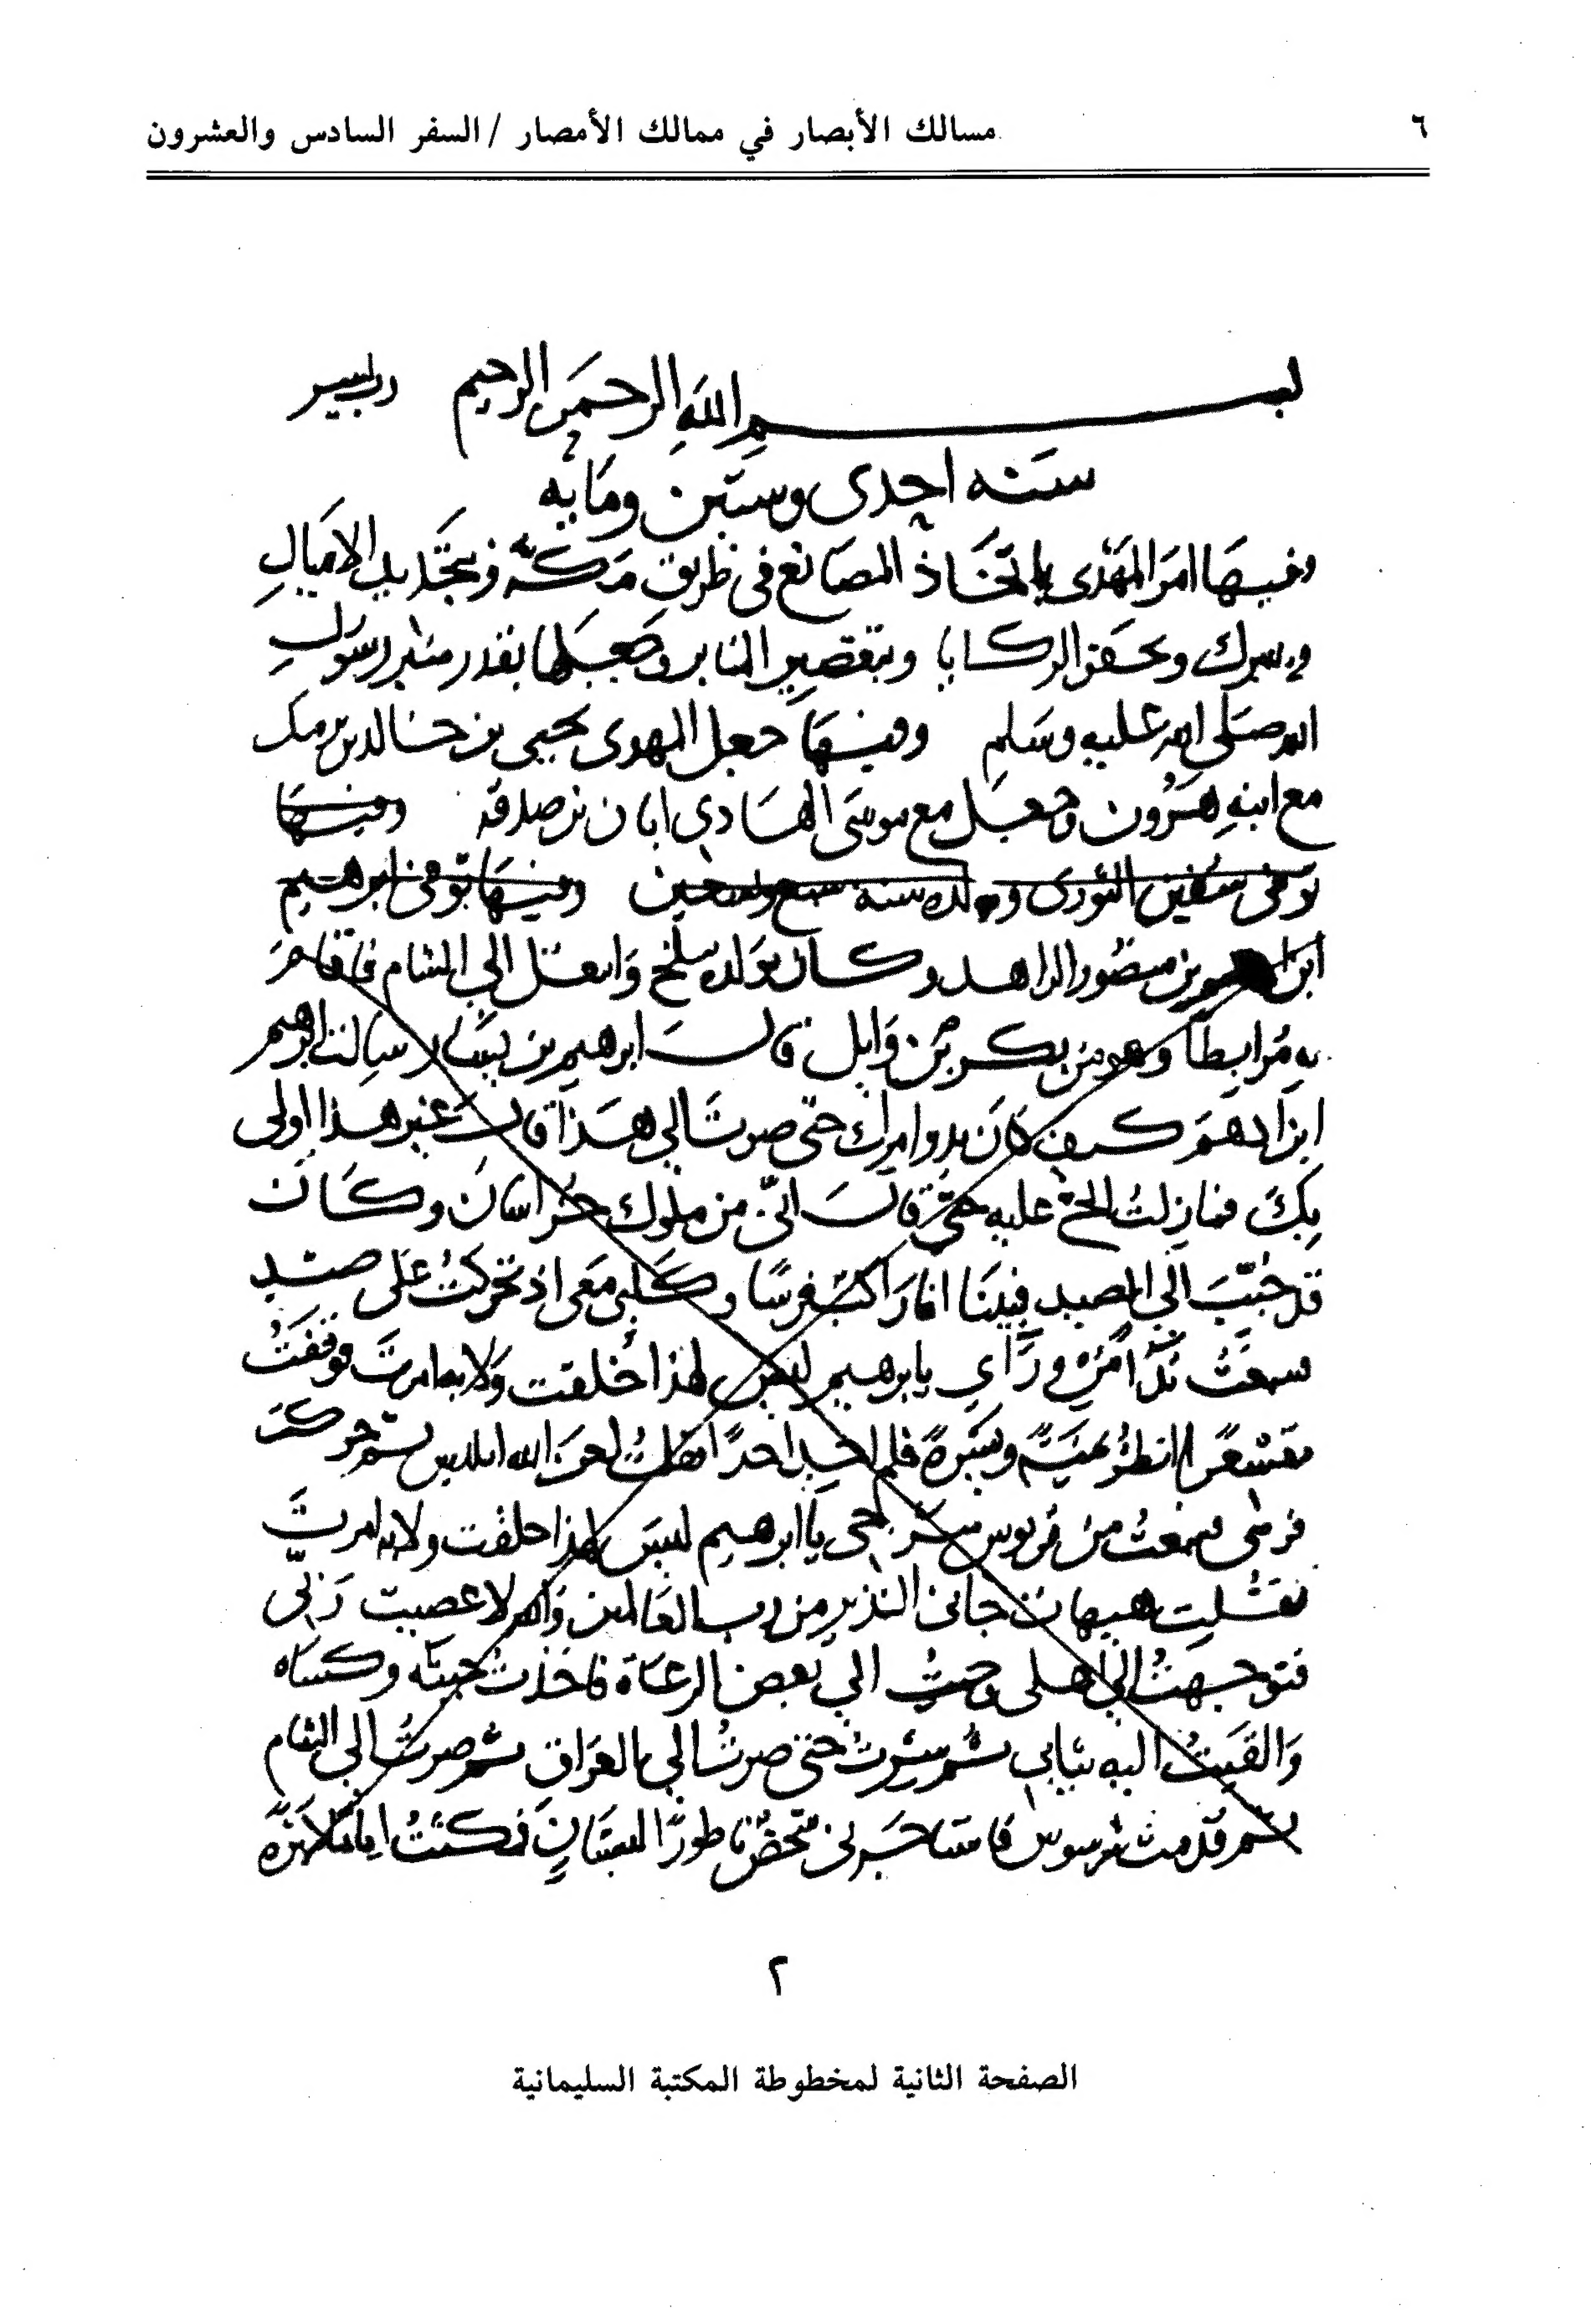 ٦
مسالك الأبصار في ممالك الأمصار / السفر السادس والعشرون
بسم الله الرحمن الرحيم رب يسر
سنه احدى وستين ومايه
وفيها امر المهدى باتخاذ المصانع فى طريق مكه وتجديد الاميال
والبرك وبحفر الركايا وبتقصير المنابر وجعلها بقدر منبر رسول
الله صلى الله عليه وسلم وفيها جعل المهدى يحيى بن خالد بن برمك
مع ابنه هرون وجعل مع موسى الهادى ابان بن صدقه وفيها
توفى سفين الثورى ومولده سنه سبع وتسعين وفيها توفى ابرهيم
ابن ادهم بن منصور الزاهد وكان مولده ببلخ وانتقل الى الشام فاقام
به مرابطا وهو من بكر بن وايل قال ابرهيم بن يسار سالت ابرهيم
ابن ادهم كيف كان بدو امرك حتى صرت الى هذا قال غير هذا اولى
بك فما زلت الح عليه حتى قال انى من ملوك خراسان وكان
قد حبب الى الصيد فبينا انا راكب فرسا وكلبى معى اذ تحركت على صيد
سمعت ندا من وراى يابرهيم ليس لهذا خلقت ولا به امرت فوقفت
مقشعرا انظر يمنة ويسرة فلم اجد احدا فقلت لعن الله ابليس ثم حركت
فرسى فسمعت من قربوس سرجى يا ابرهيم ليس لهذا خلقت ولا به امرت
فقلت هيهات جانى النذير من رب العالمين والله لا عصيت ربى
فتوجهت الى اهلى وجيت الى بعض الرعاة فاخذت جبته وكساه
والقيت اليه ثيابى ثم سرت حتى صرت الى العراق ثم صرت الى الشام
ثم قدمت طرسوس فاستاجرنى شخص ناطورا لبستان فمكثت اياما
٢
الصفحة الثانية لمخطوطة المكتبة السليمانية